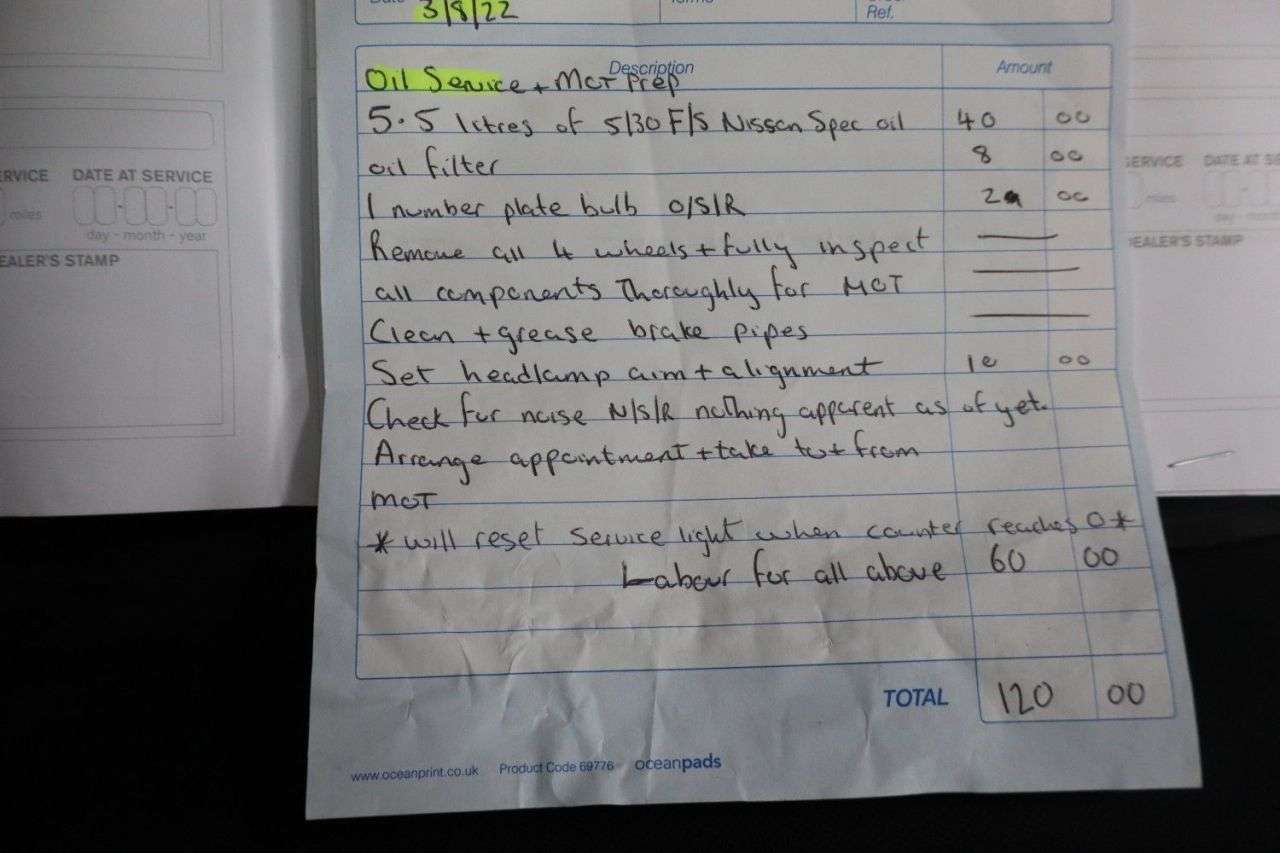 3/8/22
Ref.
Description Amount
Oil Service + MOT Prep
5.5 litres of 5/30 F/S Nissan Spec oil 40 00
oil filter 8 00
1 number plate bulb O/S/R 2 00
Remove all 4 wheels + fully inspect
all components Thoroughly for MOT
Clean + grease brake pipes
Set headlamp aim + alignment 10 00
Check for noise N/S/R nothing apparent as of yet.
Arrange appointment + take to + from
MOT
* will reset service light when counter reaches 0 *
Labour for all above 60 00
TOTAL 120 00
www.oceanprint.co.uk Product Code 69776 oceanpads
ERVICE DATE AT SERVICE
miles
day - month - year
EALER'S STAMP
SERVICE DATE AT SE
miles
day - m
EALER'S STAMP